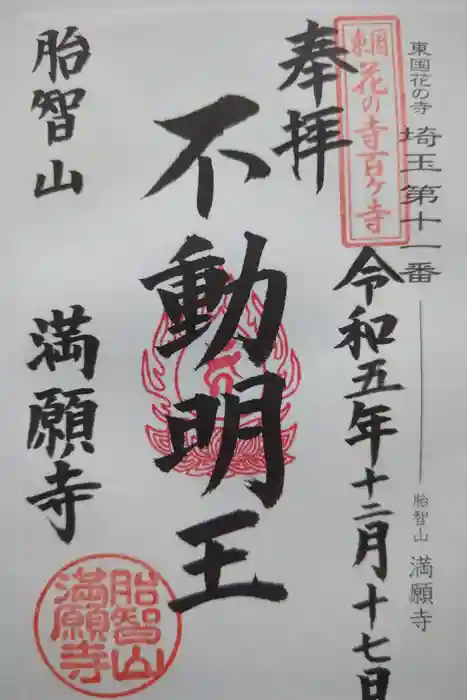 東国花の寺 埼玉第十一番
胎智山 満願寺
東国
花の寺百ケ寺
奉拝
令和五年十二月十七日
不動明王
胎智山
満願寺
胎智山
満願寺